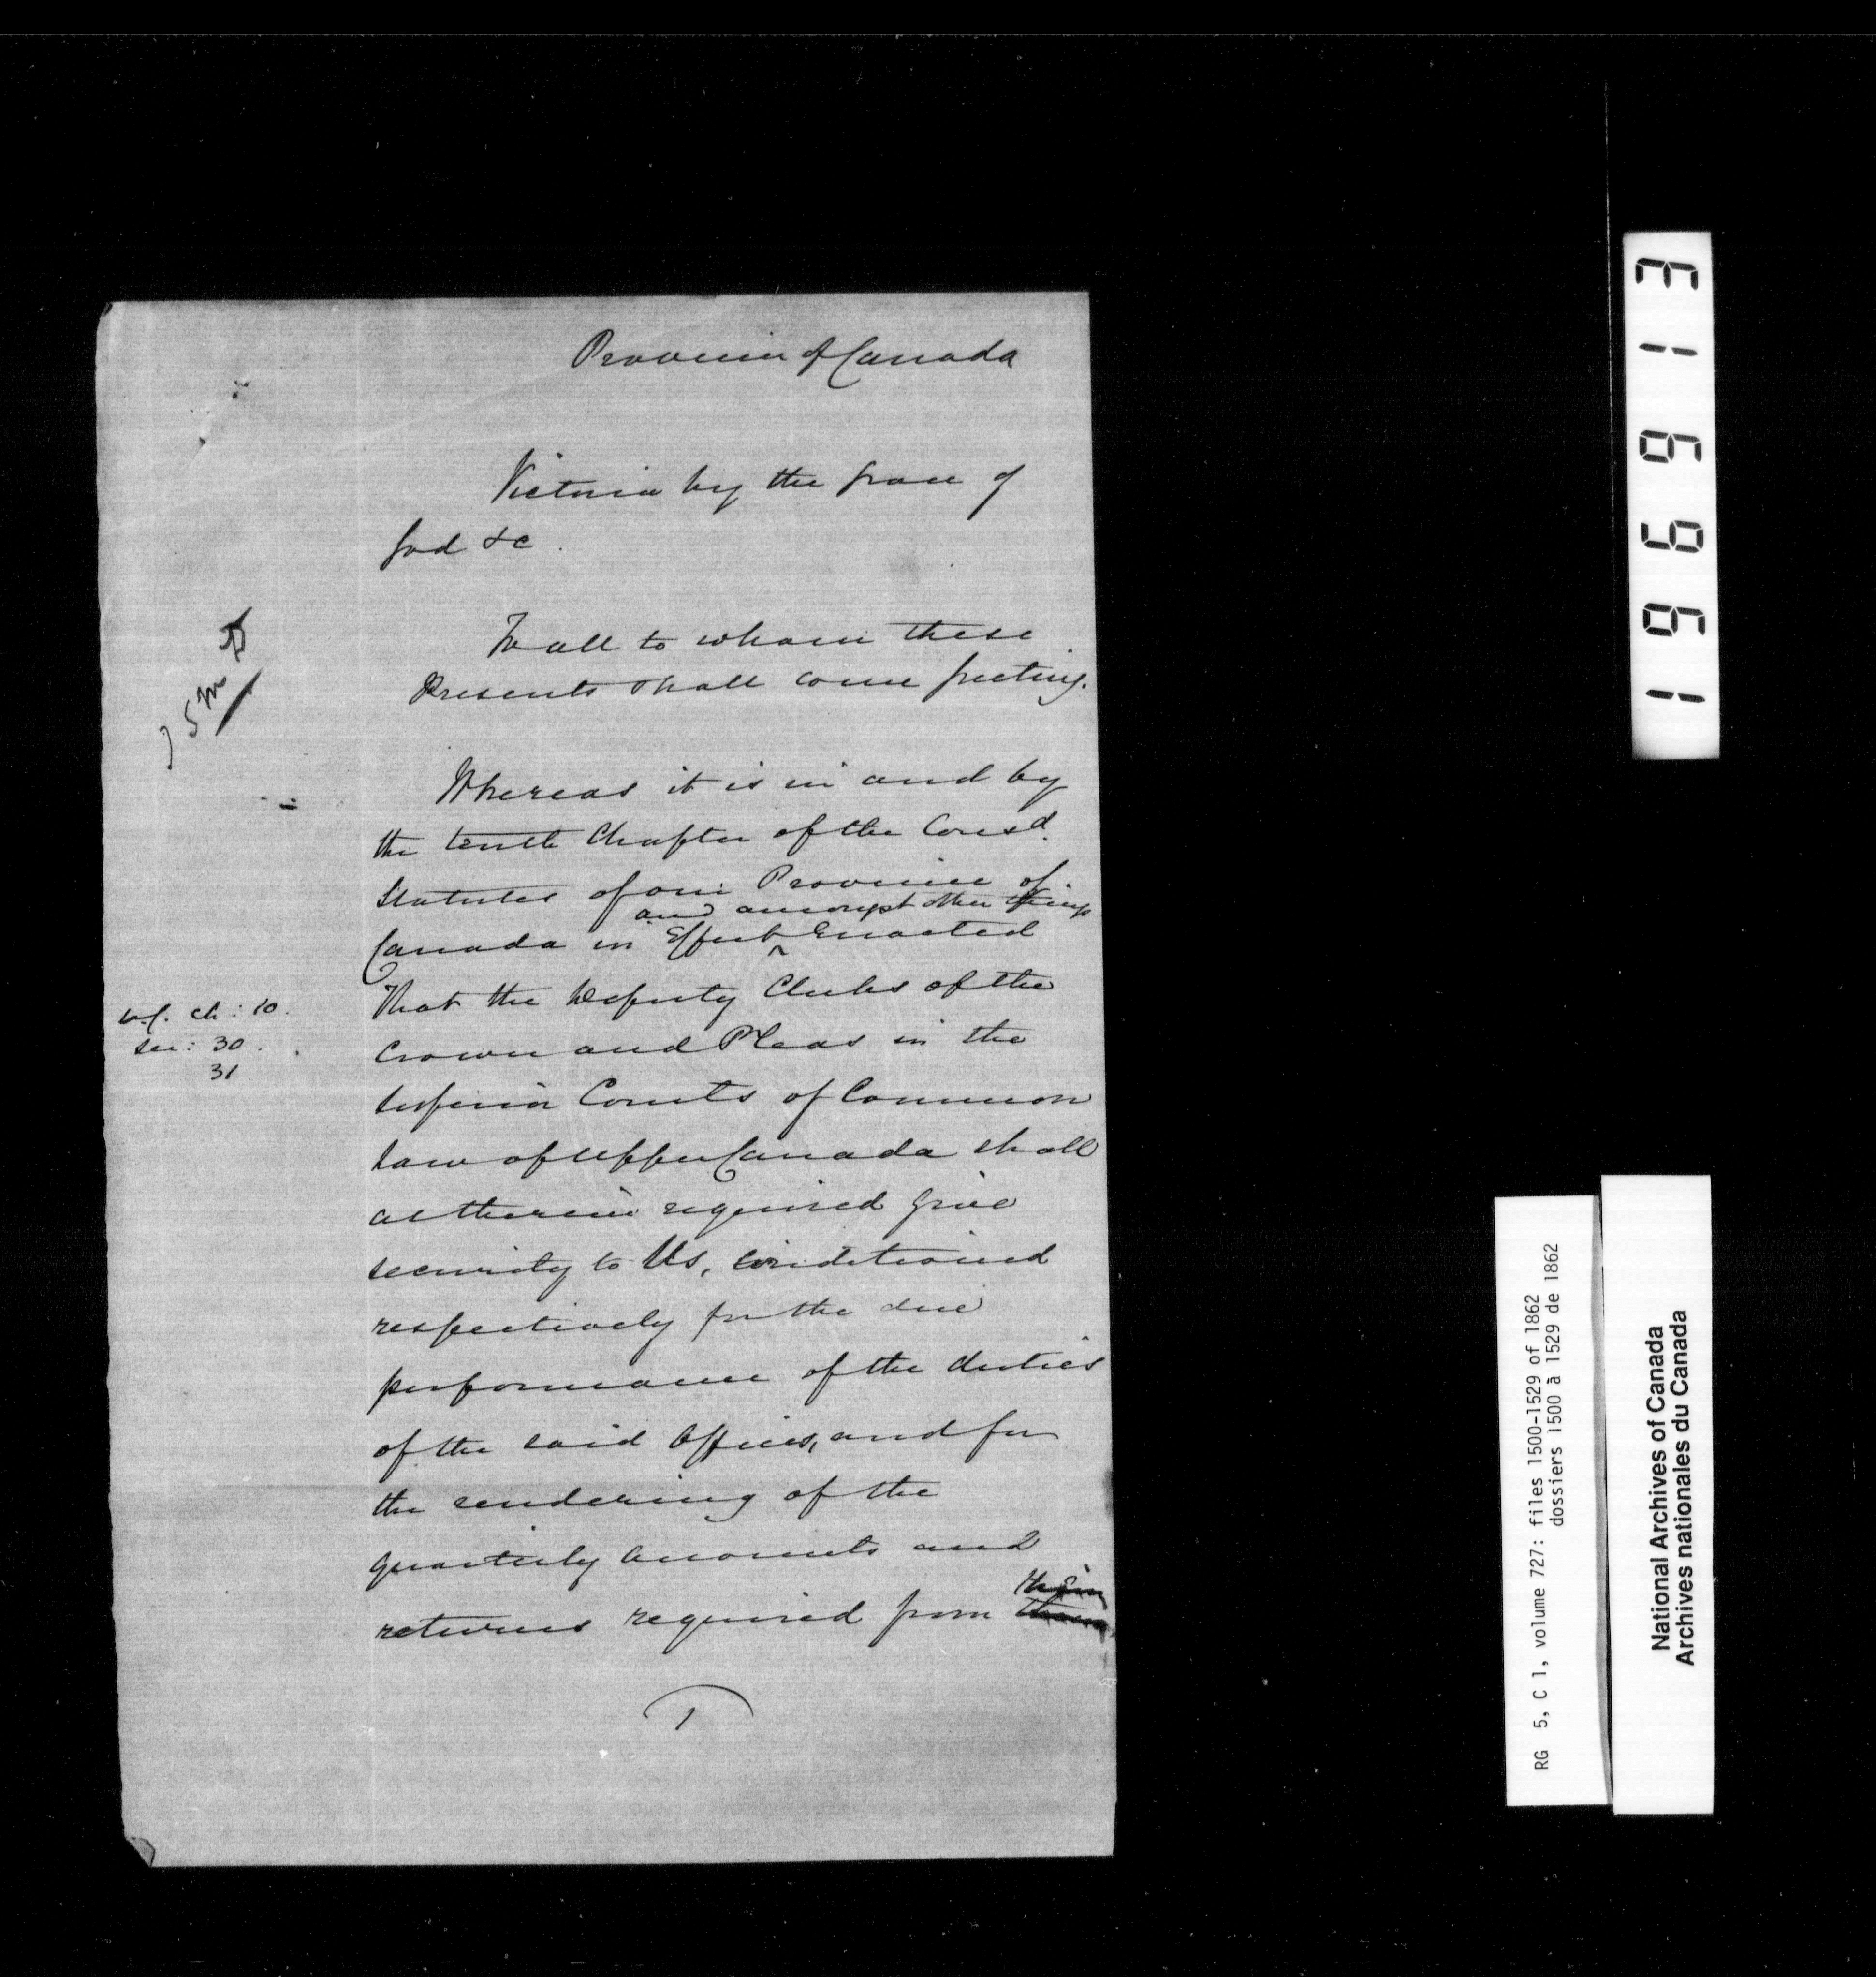 Province of Canada
Victoria by the Grace of
God &c.
To all to whom these
Presents shall come Greeting.
Whereas it is in and by
the tenth Chapter of the Consd.
Statutes of our Province of
and amongst other things
Canada in Effect Enacted
That the Deputy Clerks of the
Crown and Pleas in the
Superior Courts of Common
Law of Upper Canada shall
as therein required give
security to Us, conditioned
respectively for the due
performance of the duties
of the said Offices, and for
the rendering of the
quarterly accounts and
them
returns required from
1
ch: 10.
Sec: 30.
31
196613
RG 5, C 1, volume 727: files 1500-1529 of 1862
dossiers 1500 à 1529 de 1862
National Archives of Canada
Archives nationales du Canada